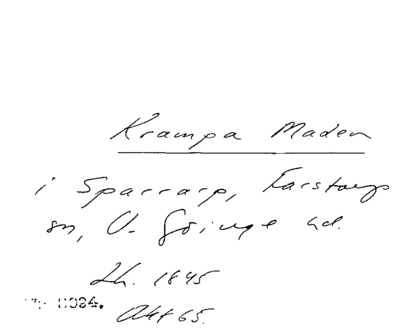 Krampa Maden
i Sparrarp, Farstorps
sn, V. Göinge hd.
Lh. 1845
0084.
Akt 65.